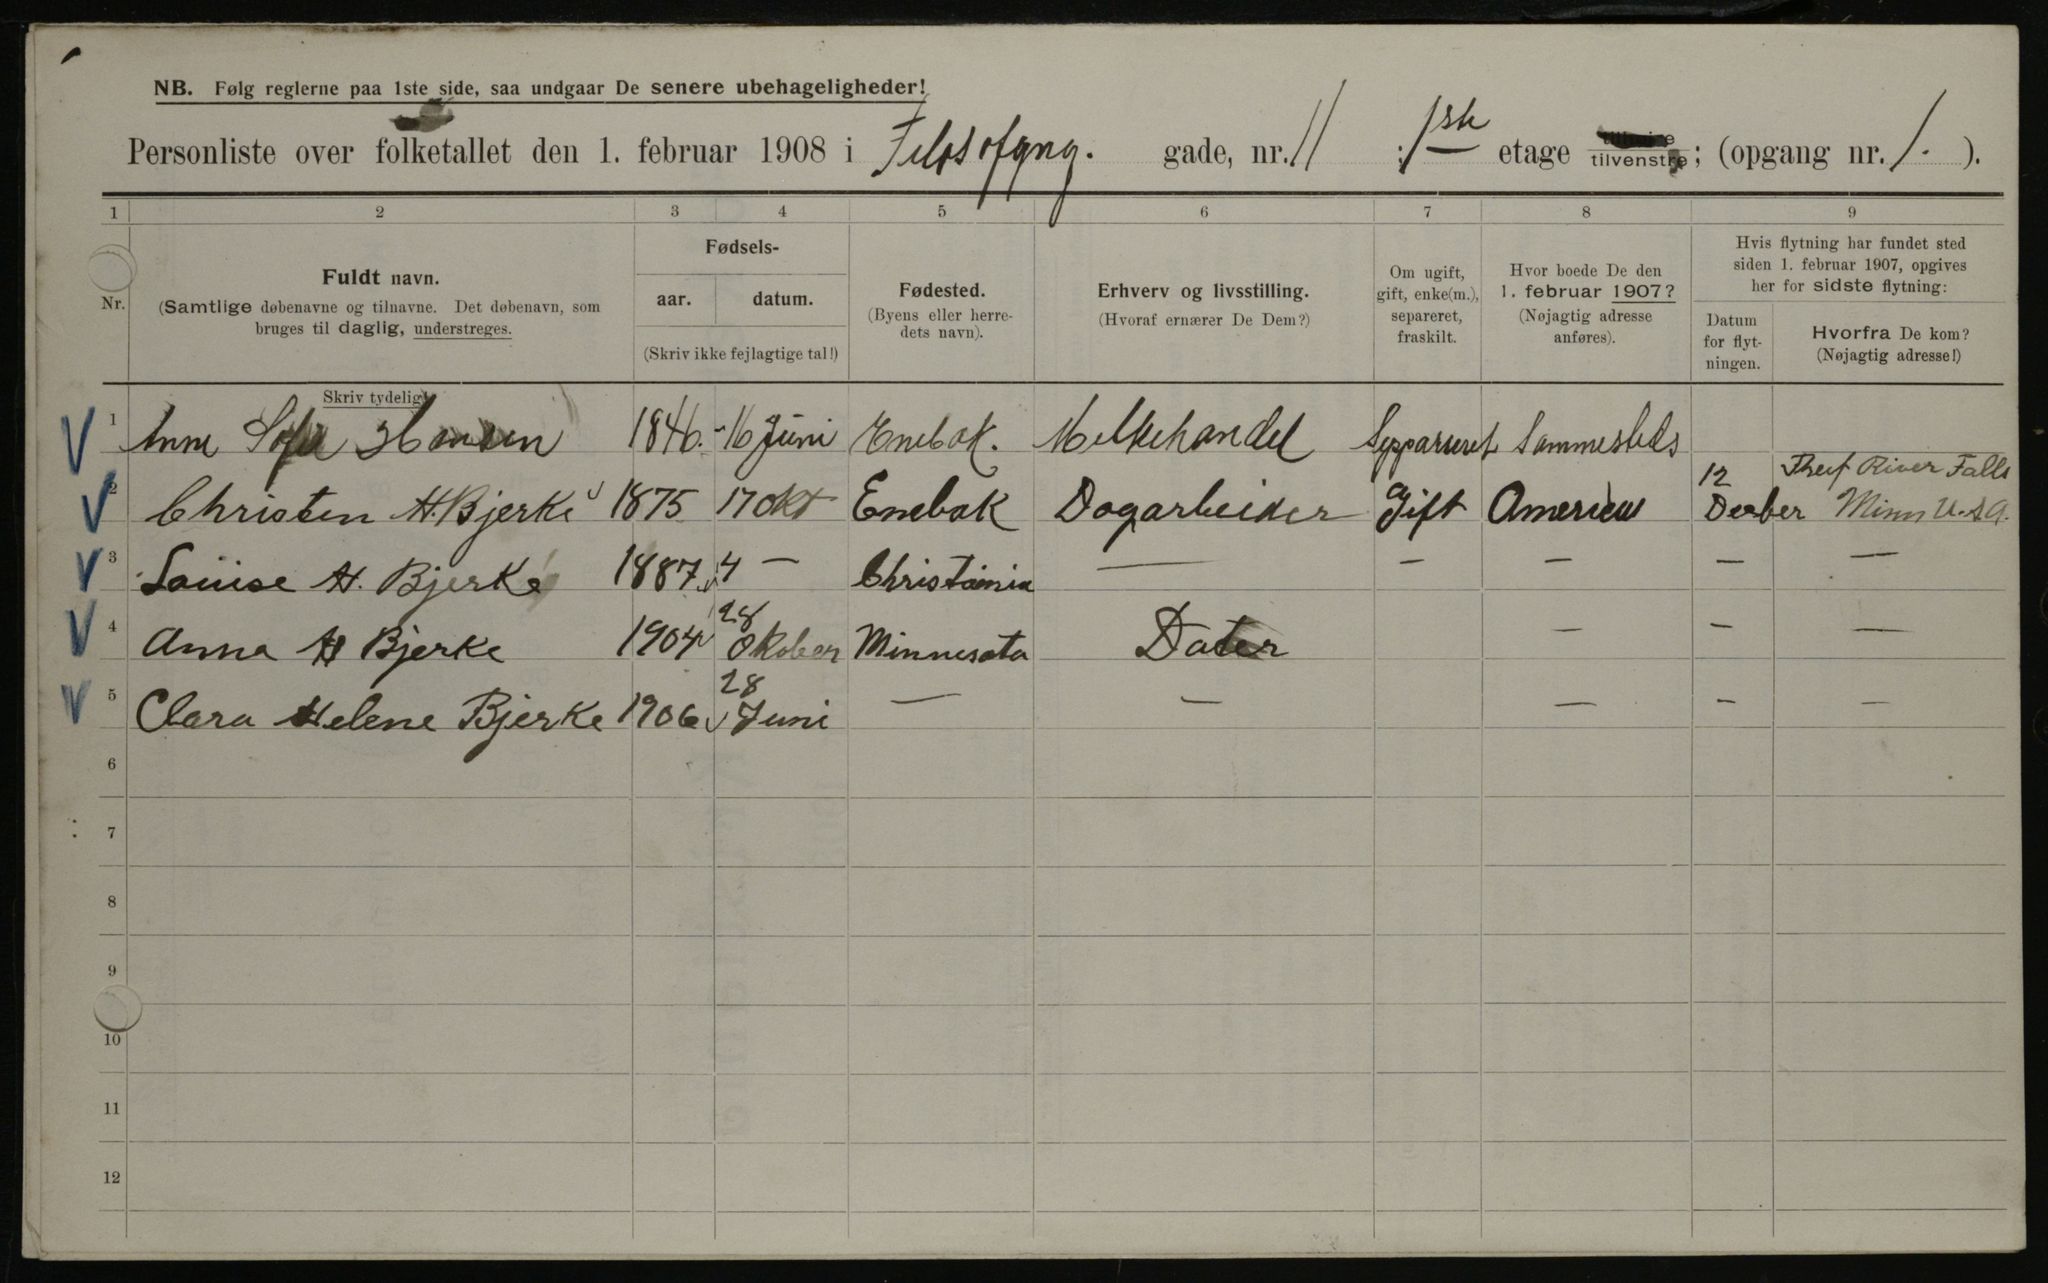 NB. Følg reglerne paa 1ste side, saa undgaar De senere ubehageligheder!
Personliste over folketallet den 1. februar 1908 i Filosofgng. gade, nr. 11 ; 1ste etage tilvenstre; (opgang nr. 1. ).
1 2 3 4 5 6 7 8 9
Nr.
Fuldt navn.
(Samtlige døbenavne og tilnavne. Det døbenavn, som
bruges til daglig, understreges.
Fødsels-
aar. datum.
(Skriv ikke fejlagtige tal!)
Fødested.
(Byens eller herre-
dets navn).
Erhverv og livsstilling.
(Hvoraf ernærer De Dem?)
Om ugift,
gift, enke(m.),
separeret,
fraskilt.
Hvor boede De den
1. februar 1907?
(Nøjagtig adresse
anføres).
Hvis flytning har fundet sted
siden 1. februar 1907, opgives
her for sidste flytning:
Datum
for flyt-
ningen.
Hvorfra De kom?
(Nøjagtig adresse!)
Skriv tydelig!
1 Anne Sofie Hansen 1846. 16 Juni Enebak. Melkehandel Sepparieret Sammesteds
2 Christen H. Bjerke 1875 17 Okt Enebak Dagarbeider Gift America 12 Decber Theif River Falls Minn U.S.A.
3 Louise H. Bjerke 1887 4 — Christania — — — — —
4 Anna H Bjerke 1904 28 Oktober Minnesota Dater — — —
5 Clara Helene Bjerke 1906 28 Juni — — — — —
6
7
8
9
10
11
12